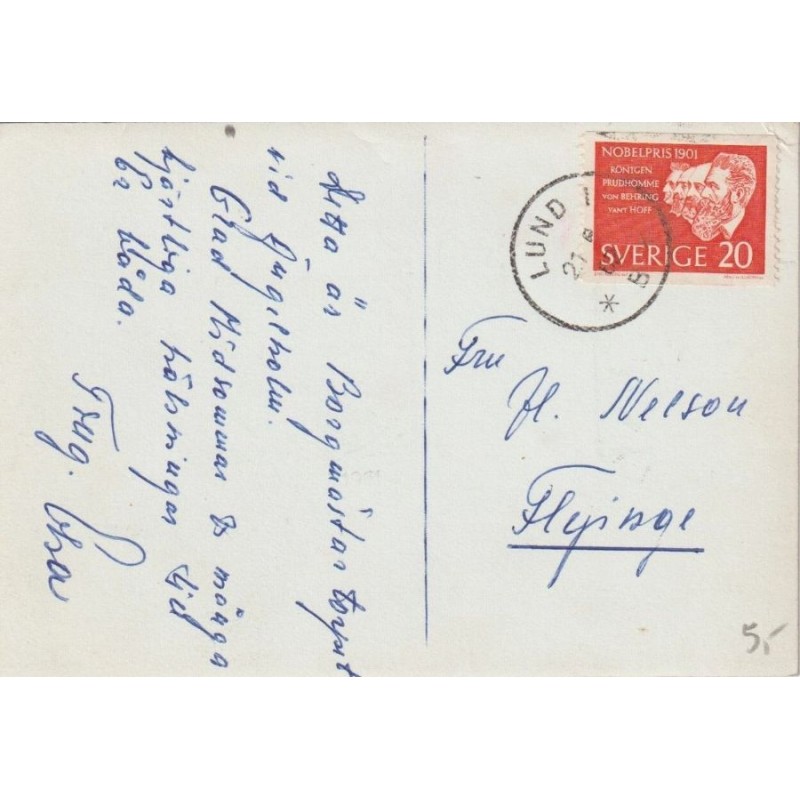 Detta är Borgmästartorpet
vid Ängelholm.
Glad Midsommar & många
hjärtliga hälsningar till
Er båda.
Tryg.
NOBELPRIS 1901
RÖNTGEN
PRUDHOMME
VON BEHRING
VANT HOFF
SVERIGE 20
LUND
Fru
H. Nelson
Flyinge
5,-